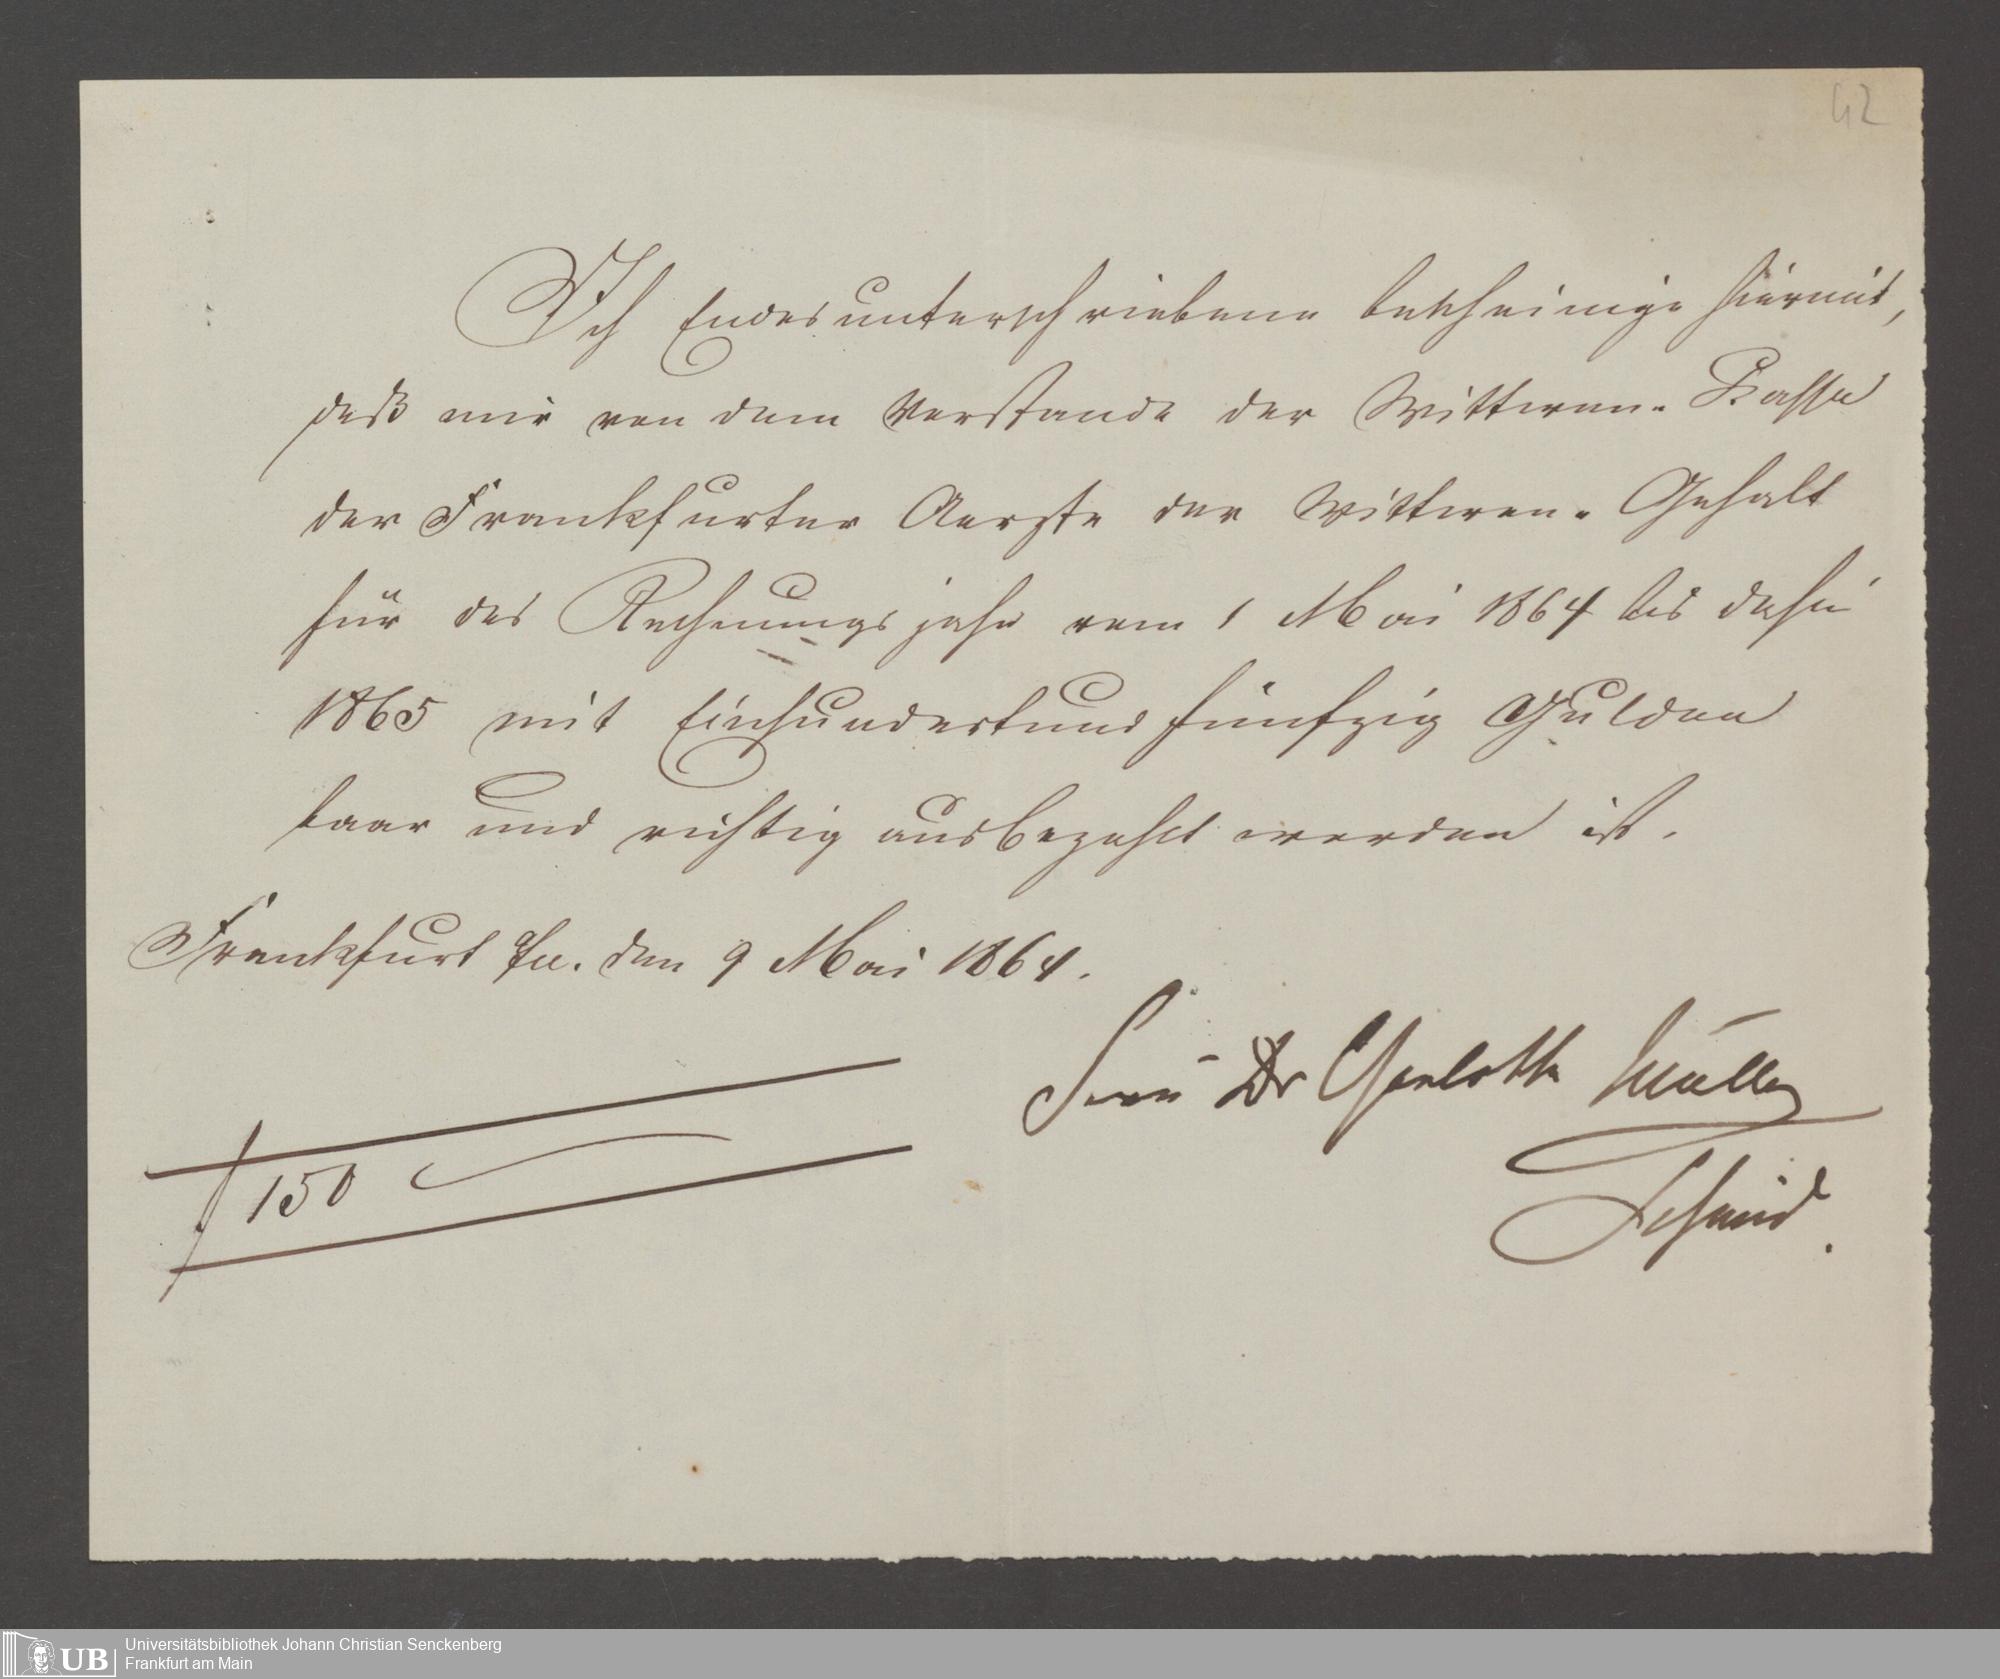 42
Ich Endesunterschriebene bescheinige hiermit,
daß mir von dem Vorstande der Wittwen-Kasse
der Frankfurter Aerzte der Wittwen-Gehalt
für das Rechnungsjahr vom 1 Mai 1864 bis dahin
1865 mit Einhundertundfünfzig Gulden
baar und richtig ausbezahlt worden ist.
Frankfurt a/m. den 9 Mai 1864.
Frau Dr Charlotte Müller
Schmid.
f 150
UB Universitätsbibliothek Johann Christian Senckenberg
Frankfurt am Main